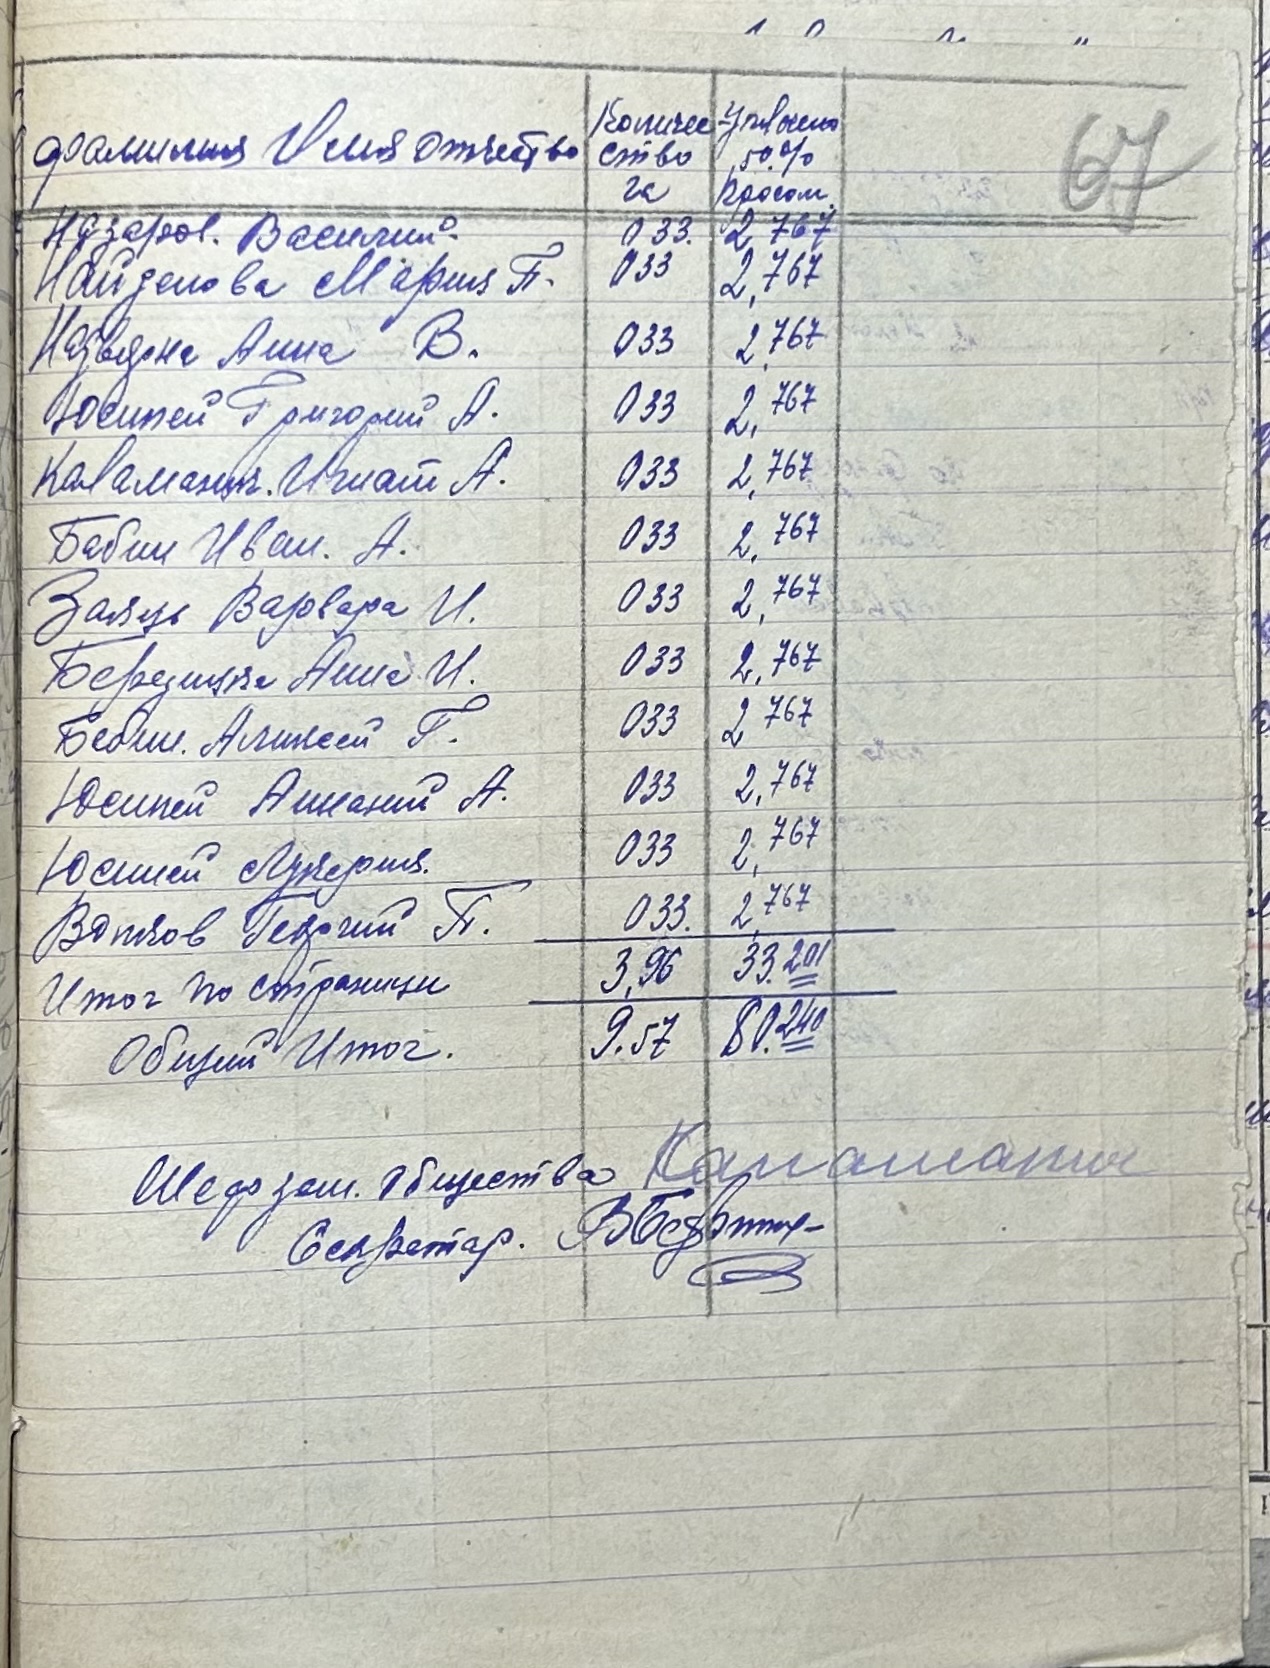 67
фамилия Имя отчество Количество га Уплочено 50% Кассам.
Назаров. Василий. 033. 2,767
Найденова Мария П. 033 2,767
Анна В. 033 2,767
Юсипей Григорий А. 033 2,767
Каламаняк. Игнат А. 033 2,767
Бабин Иван. А. 033 2,767
Заяць Варвара И. 033 2,767
Анна И. 033 2,767
Бабин. Аликсей Г. 033 2,767
Юсипей Ананий А. 033 2,767
Юсипей Лукерия. 033 2,767
Волков Георгий П. 033. 2,767
Итог по страници 3,96 33.201
Общий Итог. 9.57 80.240
общества
Секретар.